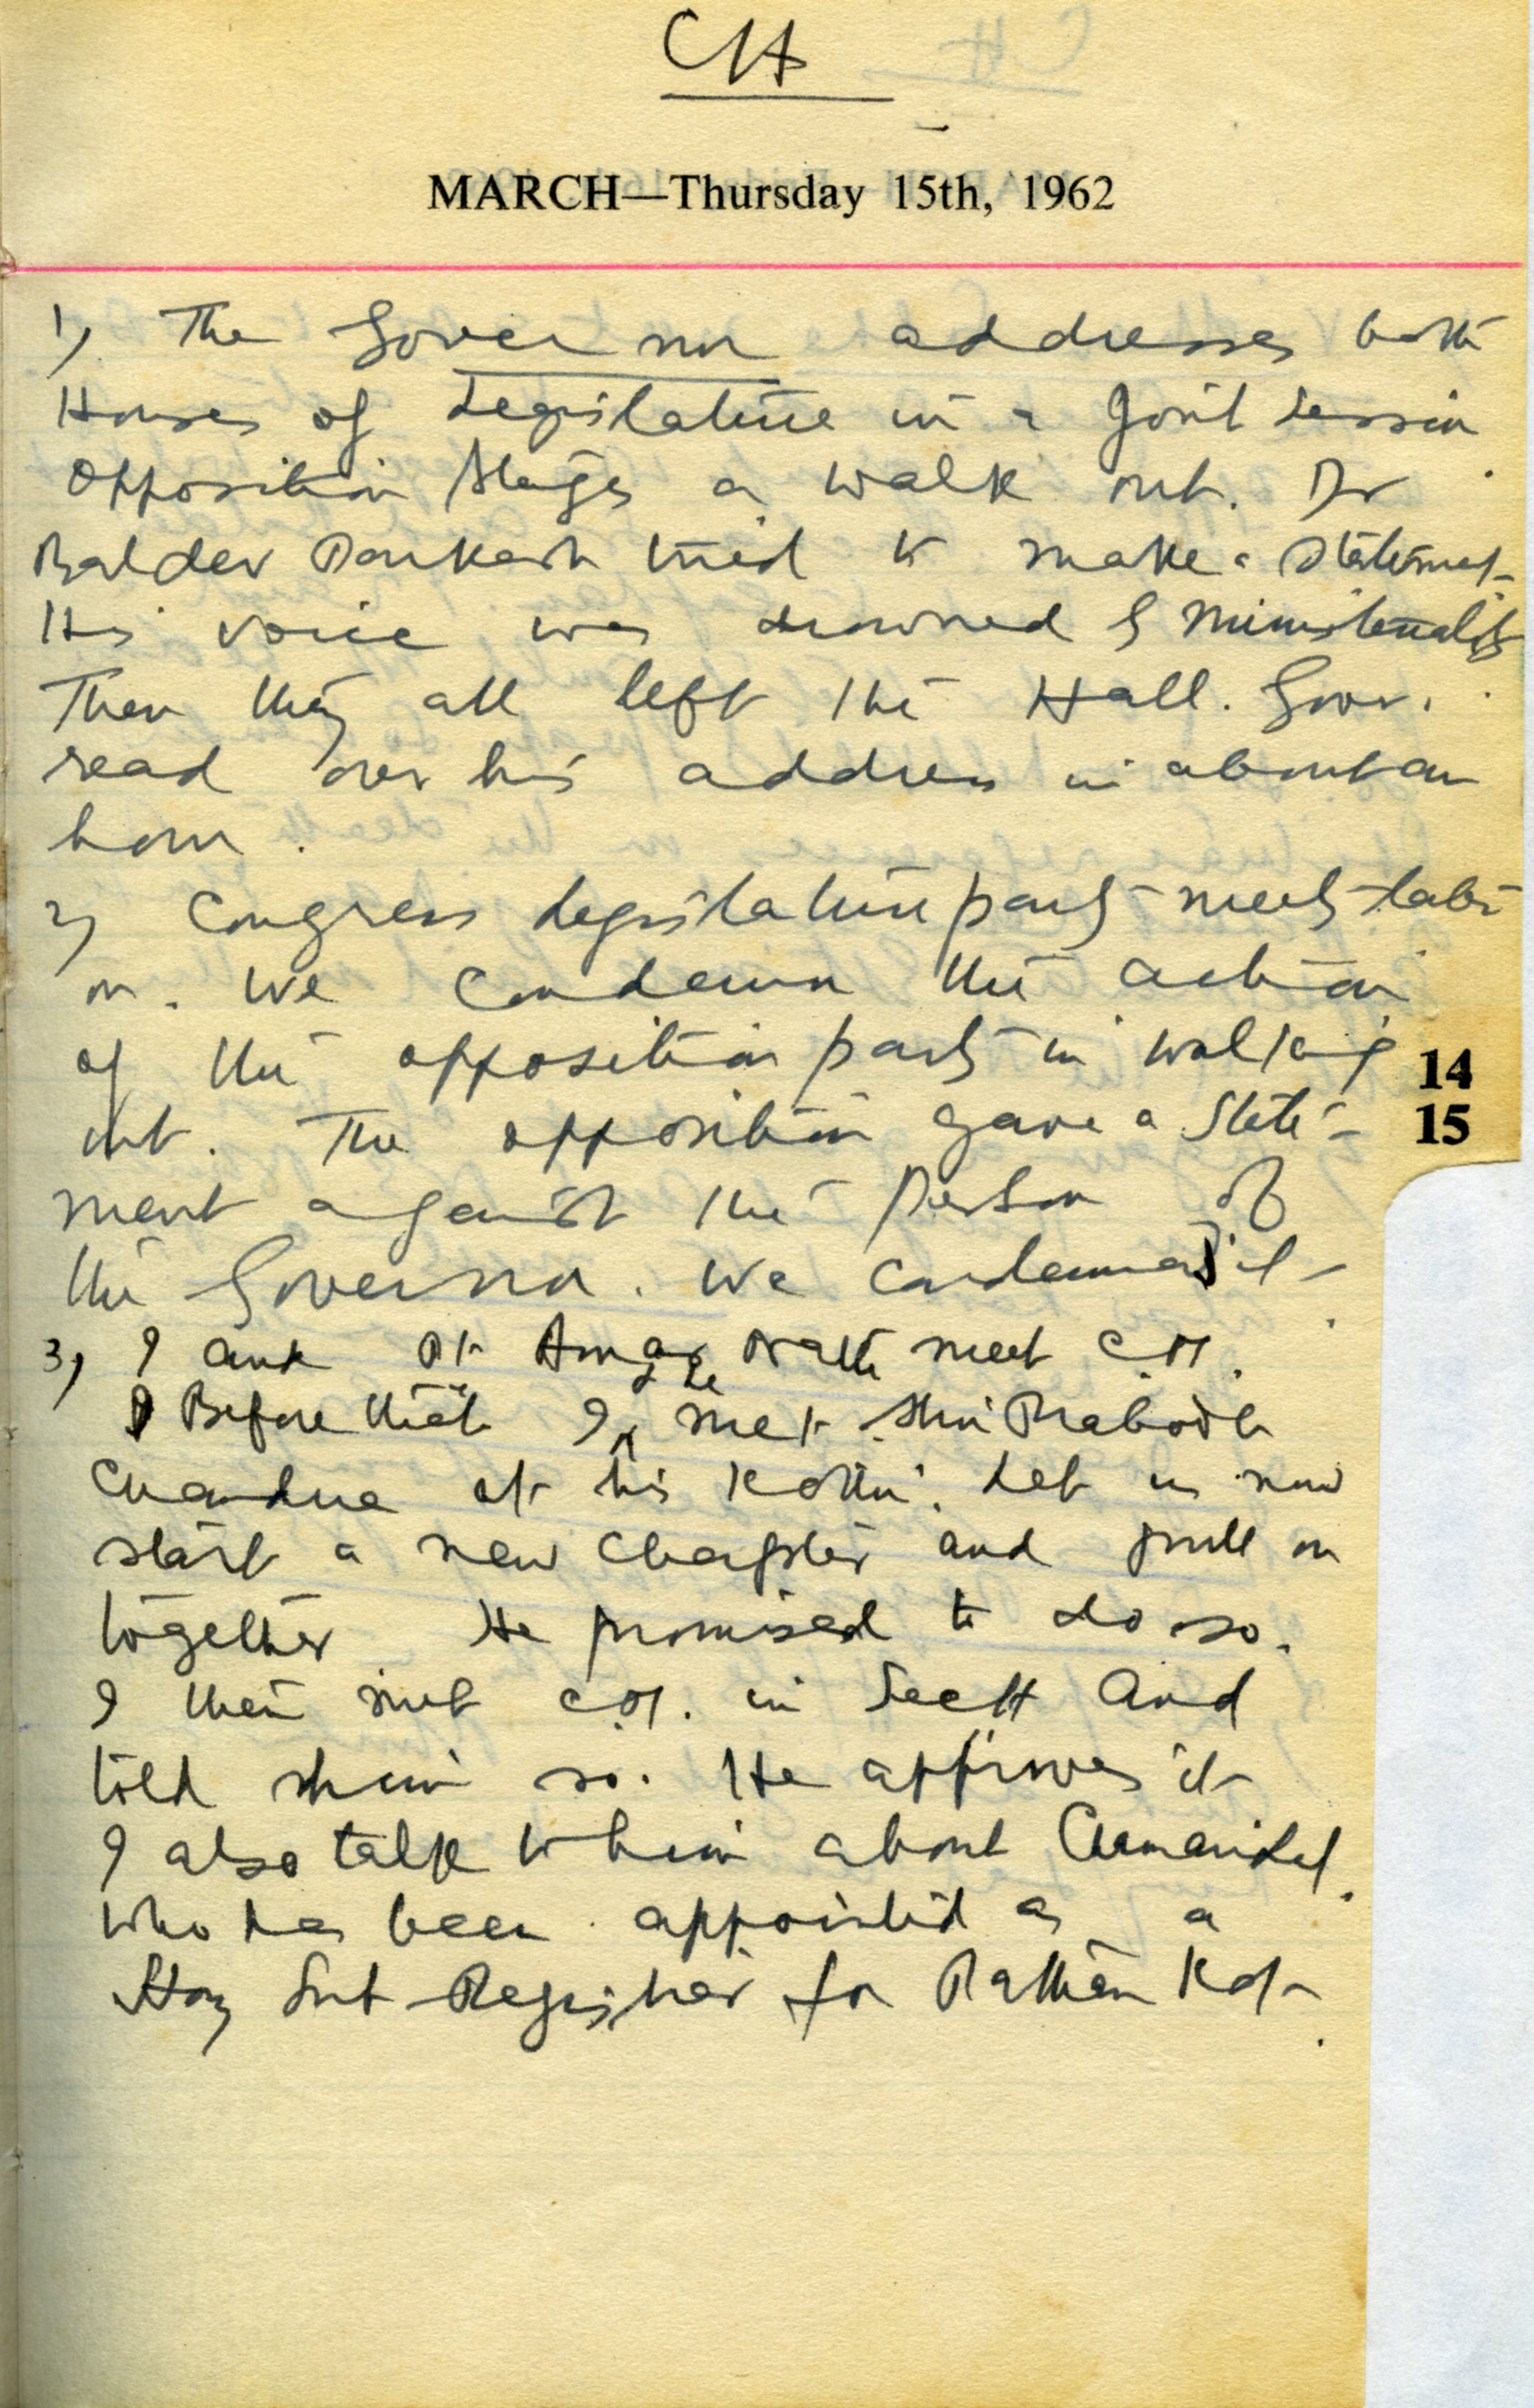 CH
MARCH—Thursday 15th, 1962
1) The Governor addresses both
Houses of Legislature in a Joint Session
Opposition stages a walk out. Dr
Baldev Parkash tried to make a statement
His voice was drowned by Ministerialists
Then they all left the Hall. Gover.
read over his address in about an
hour.
2) Congress Legislature party meets later
on. We condemn the action
of the opposition party in walking
14
out. The opposition gave a State-
15
ment against the person of
the Governor. We condemned it
3) I and Pt Amar Nath meet C.M.
Before that I & he met Shri Prabodh
Chandra at his Kothi. Let us now
start a new chapter and pull on
together He promised to do so.
I then met C.M. in Sectt and
told him so. He approves it
I also talk to him about
who has been appointed as a
Hony Sub-Register for Pathankot.